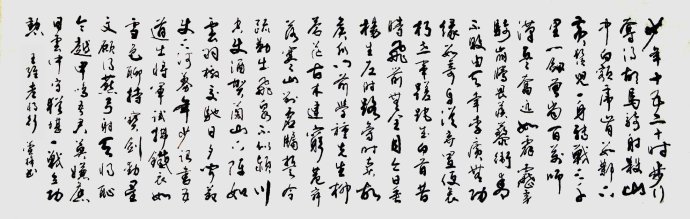 少年十五二十时步行
奪得胡马騎射殺山
中白額虎肯数鄴下
黄鬚兒一身转戰三千
里一劍曾當百萬師
漢兵奮迅如霹靂虜
騎崩腾畏蒺藜衛青
不敗由天幸李廣無功
缘数奇自從棄置便衰
朽世事蹉跎成白首昔
時飛箭無全目今日垂
楊生左肘路旁时賣故
侯瓜门前學種先生柳
蒼茫古木連窮巷寥
落寒山對虚牖誓令
疏勒出飛泉不似颍川
空使酒賀蘭山下陣如
雲羽檄交馳日夕闻節
使三河募年少詔書五
道出将軍試拂鐵衣如
雪色聊持寶劍動星
文願得燕弓射天将恥
令越甲鸣吾君莫嫌舊
日雲中守猶堪一戰立功
勲 王維老将行 書